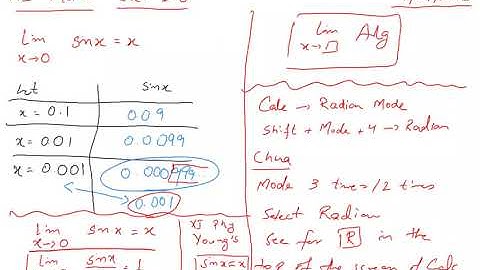 Lim sinx = x
x→0
let sinx
x = 0.1 0.09
x = 0.01 0.0099
x = 0.001 0.000999...
0.001
Lim sinx = x
x→0
Lim sinx/x = 1
XI Phy
Young's
sinx=x
lim Alg
x→□
Calc → Radian Mode
Shift + Mode + 4 → Radian
China
Mode 3 times/2 times
Select Radian
See for R in the
top of the screen of Calc